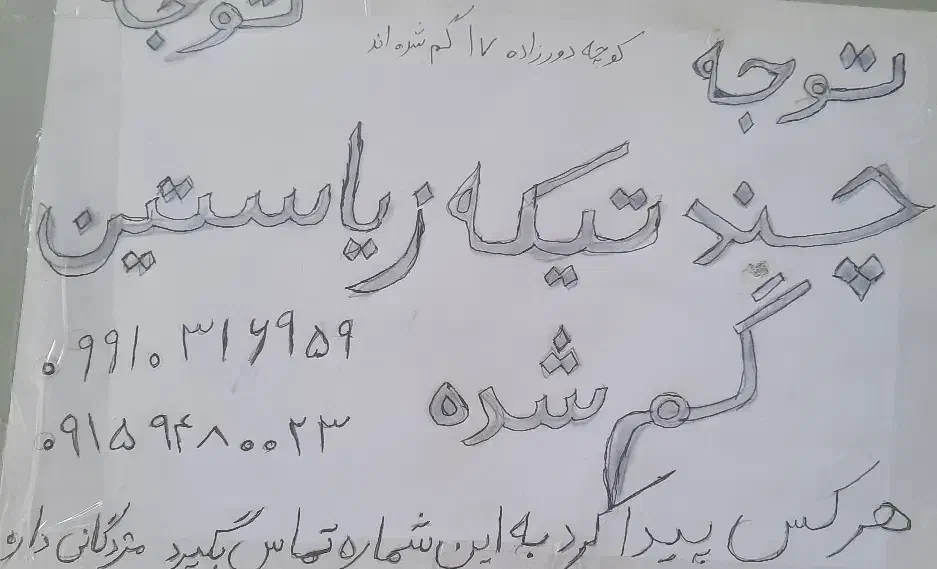 توجه
کوچه دورزاده ۱۷ گم شده اند
توجه
چند تیکه زیاستین
گم شده
۰۹۹۱۰۳۱۶۹۵۹
۰۹۱۵۹۴۸۰۰۲۳
هرکس پیدا کرد به این شماره تماس بگیرد مژدگانی داره